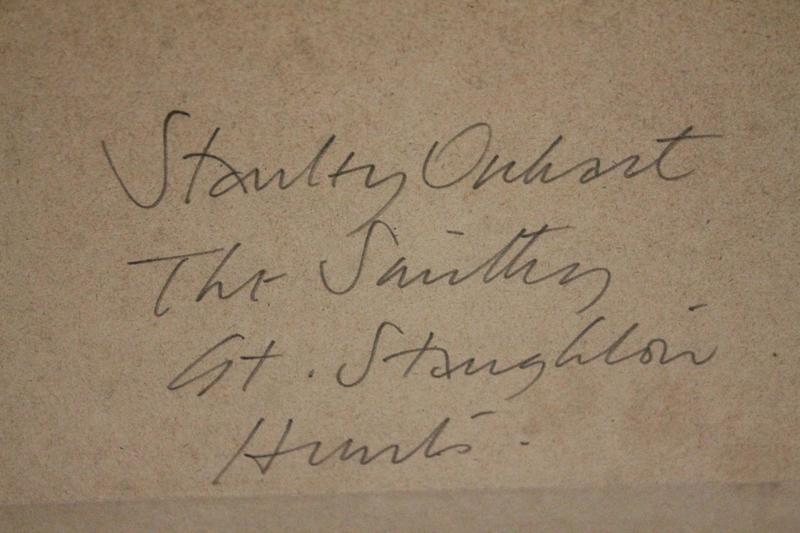 Stanley Orchart
The Smithy
Gt. Staughton
Hunts.